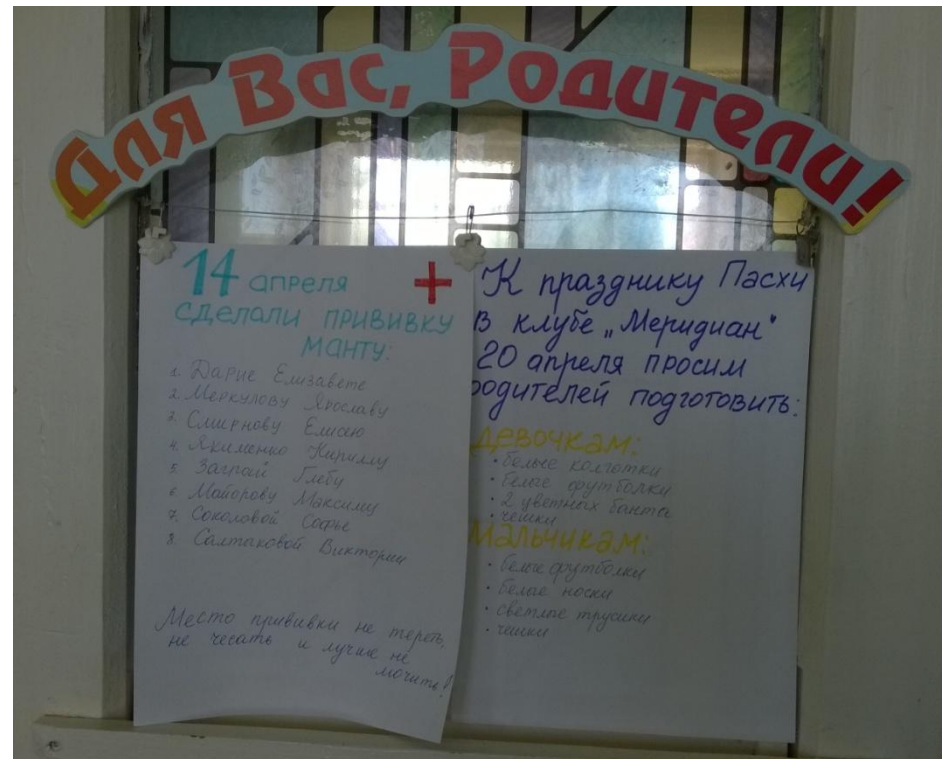 Для Вас, Родители!
14 апреля +
сделали прививку
манту:
1. Дарие Елизавете
2. Меркулову Ярославу
3. Смирнову Елисею
4. Якименко Кириллу
5. Загпай Глебу
6. Майорову Максиму
7. Соколовой Софье
8. Салтаковой Виктории
Место прививки не тереть,
не чесать и лучше не
мочить!
К празднику Пасхи
в клубе „Меридиан"
20 апреля просим
родителей подготовить:
девочкам:
• белые колготки
• белые футболки
• 2 цветных банта
• чешки
мальчикам:
• белые футболки
• белые носки
• светлые трусики
• чешки